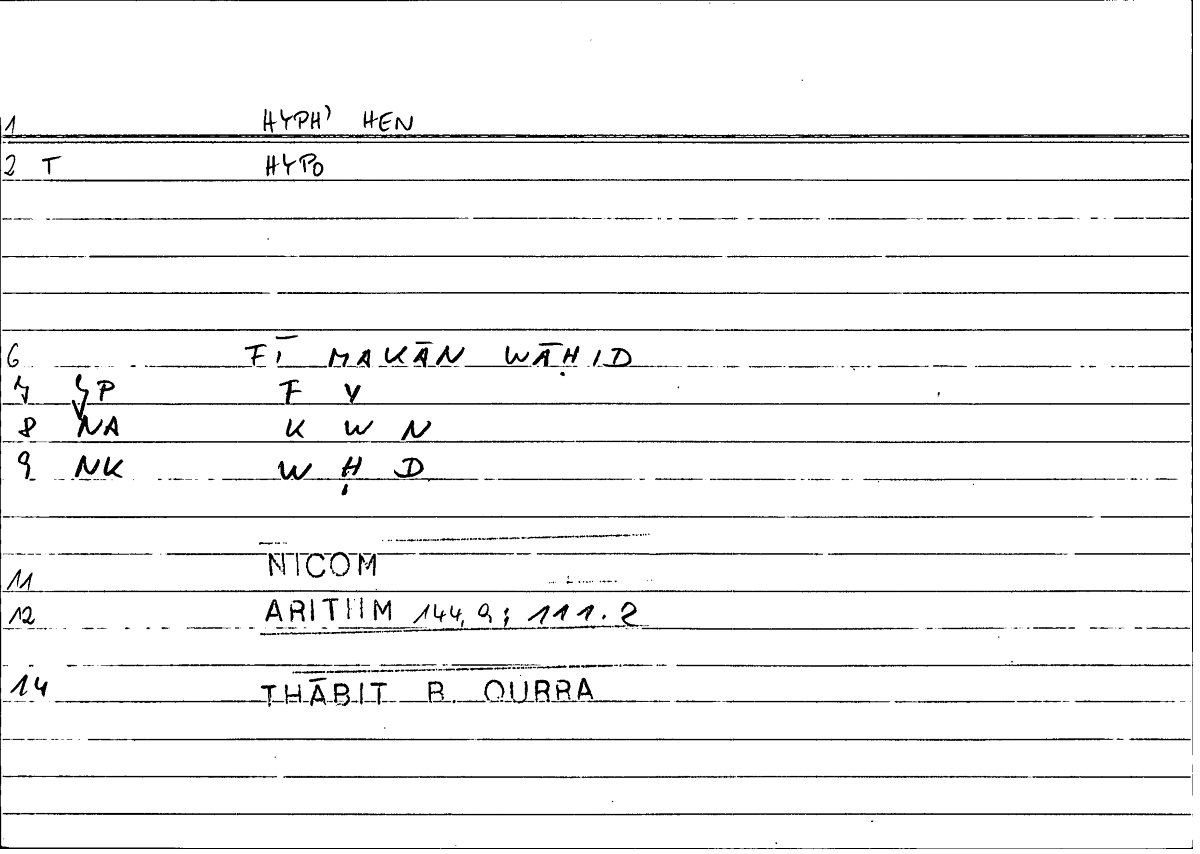 1 HYPH' HEN
2 T HYPO
6 FĪ MAKĀN WĀḤID
7 SP F Y
8 NA K W N
9 NK W Ḥ D
11 NICOM
12 ARITHM 144,9; 111.2
14 THĀBIT B. QURRA